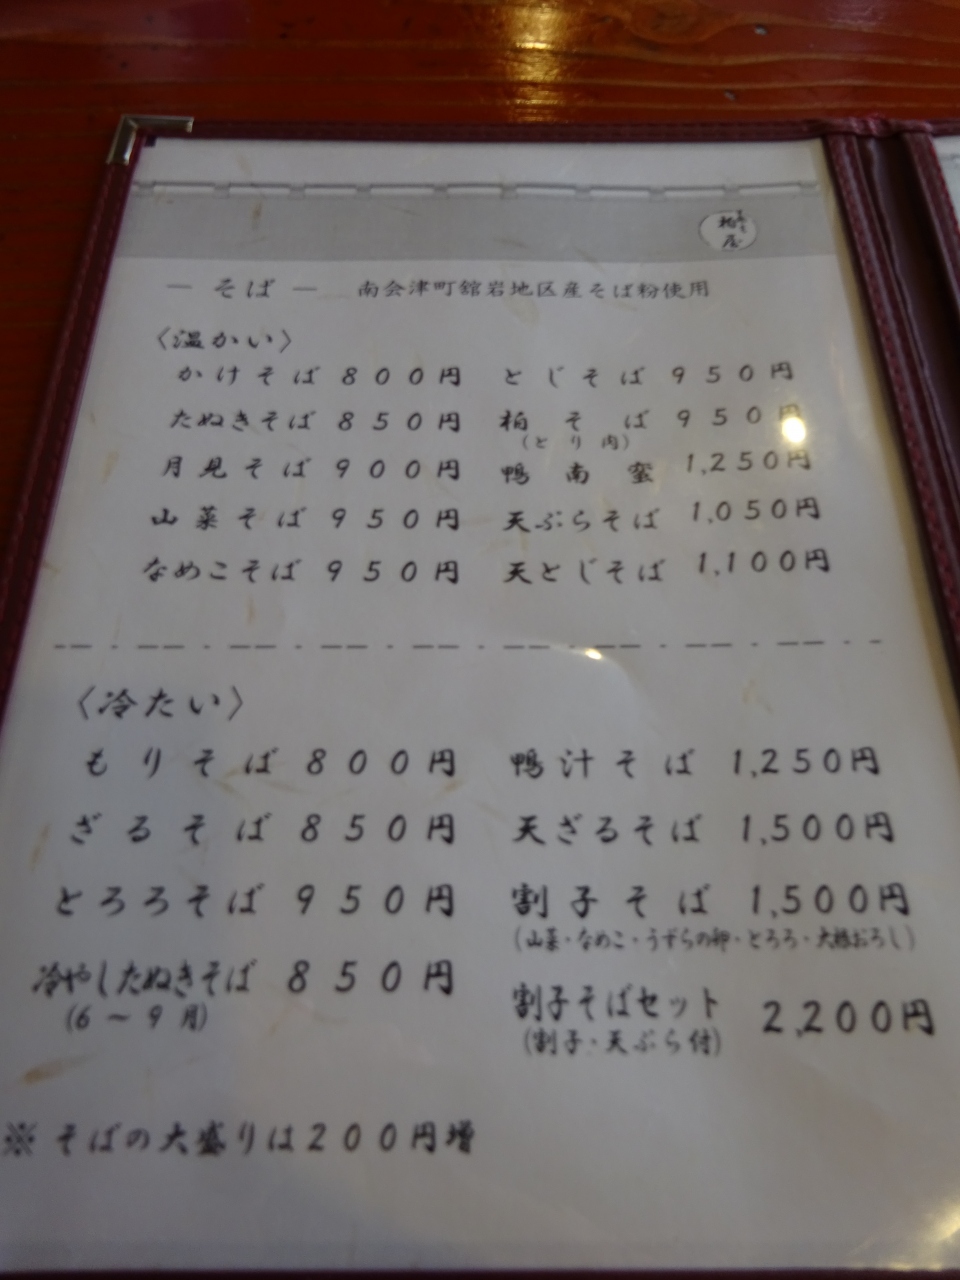 柏屋
― そば ― 南会津町舘岩地区産そば粉使用
〈温かい〉
かけそば 800円
たぬきそば 850円
月見そば 900円
山菜そば 950円
なめこそば 950円
とじそば 950円
柏そば 950円
(とり肉)
鴨南蛮 1,250円
天ぷらそば 1,050円
天とじそば 1,100円
〈冷たい〉
もりそば 800円
ざるそば 850円
とろろそば 950円
冷やしたぬきそば 850円
(6～9月)
鴨汁そば 1,250円
天ざるそば 1,500円
割子そば 1,500円
(山菜・なめこ・うずらの卵・とろろ・大根おろし)
割子そばセット 2,200円
(割子・天ぷら付)
※そばの大盛りは200円増